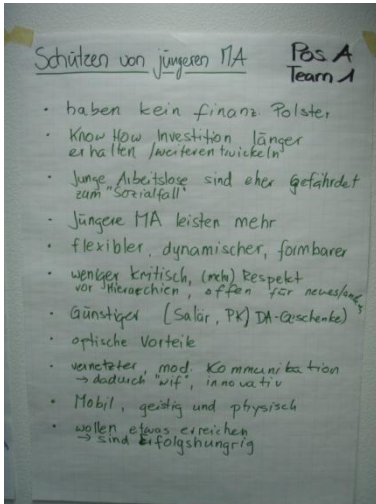 Schützen von jüngeren MA
Pos A
Team 1
• haben kein finanz. Polster
• Know How Investition länger
erhalten / weiterentwickeln
• Junge Arbeitslose sind eher gefährdet
zum "Sozialfall"
• Jüngere MA leisten mehr
• flexibler, dynamischer, formbarer
• weniger kritisch, (mehr) Respekt
vor Hierarchien, offen für neues/
• Günstiger (Salär, PK) DA-Geschenke)
• optische Vorteile
• vernetzter, mod. Kommunikation
→ dadurch "wif", innovativ
• Mobil, geistig und physisch
• wollen etwas erreichen
→ sind erfolgshungrig